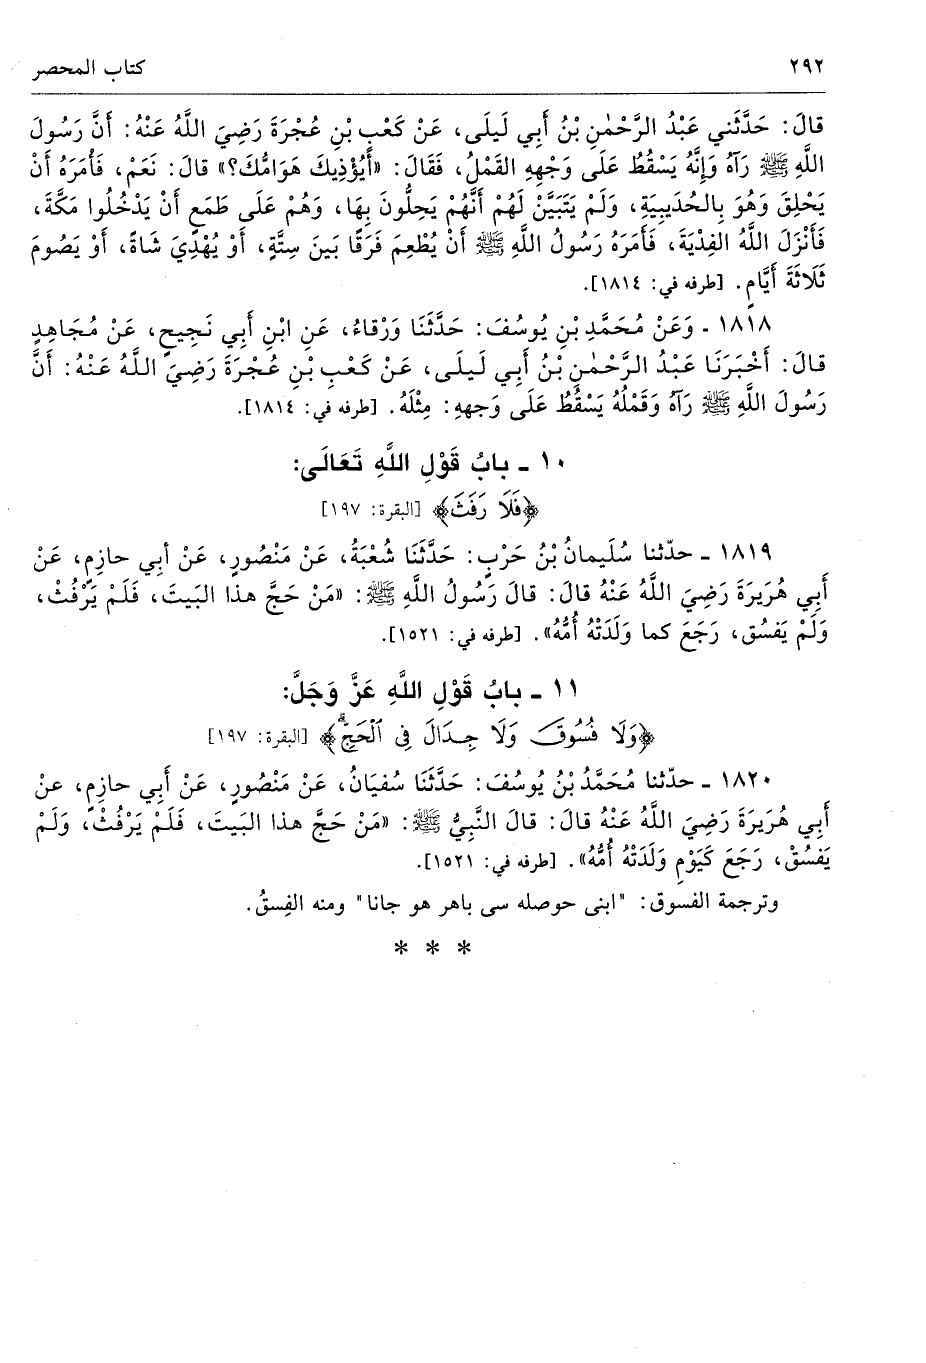 ٢٩٢ كتاب المحصر
قالَ: حَدَّثَني عَبْدُ الرَّحْمٰنِ بْنُ أَبِي لَيلَى، عَنْ كَعْبِ بْنِ عُجْرَةَ رَضِيَ اللَّهُ عَنْهُ: أَنَّ رَسُولَ
اللَّهِ ﷺ رَآهُ وَإِنَّهُ يَسْقُطُ عَلَى وَجْهِهِ القَمْلُ، فَقَالَ: «أَيُؤْذِيكَ هَوَامُّكَ؟» قالَ: نَعَمْ، فَأَمَرَهُ أَنْ
يَحْلِقَ وَهُوَ بِالحُدَيبِيَةِ، وَلَمْ يَتَبَيَّنْ لَهُمْ أَنَّهُمْ يَحِلُّونَ بِهَا، وَهُمْ عَلَى طَمَعٍ أَنْ يَدْخُلُوا مَكَّةَ،
فَأَنْزَلَ اللَّهُ الفِدْيَةَ، فَأَمَرَهُ رَسُولُ اللَّهِ ﷺ أَنْ يُطْعِمَ فَرَقًا بَينَ سِتَّةٍ، أَوْ يُهْدِيَ شَاةً، أَوْ يَصُومَ
ثَلَاثَةَ أَيَّامٍ. [طرفه في: ١٨١٤].
١٨١٨ ـ وَعَنْ مُحَمَّدِ بْنِ يُوسُفَ: حَدَّثَنَا وَرْقاءُ، عَنِ ابْنِ أَبِي نَجِيحٍ، عَنْ مُجَاهِدٍ
قالَ: أَخْبَرَنَا عَبْدُ الرَّحْمٰنِ بْنُ أَبِي لَيلَى، عَنْ كَعْبِ بْنِ عُجْرَةَ رَضِيَ اللَّهُ عَنْهُ: أَنَّ
رَسُولَ اللَّهِ ﷺ رَآهُ وَقَمْلُهُ يَسْقُطُ عَلَى وَجهِهِ: مِثْلَهُ. [طرفه في: ١٨١٤].
١٠ ـ بابُ قَوْلِ اللَّهِ تَعَالَى:
﴿فَلَا رَفَثَ﴾ [البقرة: ١٩٧]
١٨١٩ ـ حدّثنا سُلَيمانُ بْنُ حَرْبٍ: حَدَّثَنَا شُعْبَةُ، عَنْ مَنْصُورٍ، عَنْ أَبي حازِمٍ، عَنْ
أَبِي هُرَيرَةَ رَضِيَ اللَّهُ عَنْهُ قالَ: قالَ رَسُولُ اللَّهِ ﷺ: «مَنْ حَجَّ هذا البَيتَ، فَلَمْ يَرْفُثْ،
وَلَمْ يَفسُق، رَجَعَ كما وَلَدَتْهُ أُمُّهُ». [طرفه في: ١٥٢١].
١١ ـ بابُ قَوْلِ اللَّهِ عَزَّ وَجَلَّ:
﴿وَلَا فُسُوقَ وَلَا جِدَالَ فِي ٱلْحَجِّۗ﴾ [البقرة: ١٩٧]
١٨٢٠ ـ حدّثنا مُحَمَّدُ بْنُ يُوسُفَ: حَدَّثَنَا سُفيَانُ، عَنْ مَنْصُورٍ، عَنْ أَبِي حازِمٍ، عنْ
أَبِي هُرَيرَةَ رَضِيَ اللَّهُ عَنْهُ قالَ: قالَ النَّبِيُّ ﷺ: «مَنْ حَجَّ هذا البَيتَ، فَلَمْ يَرْفُثْ، وَلَمْ
يَفسُقْ، رَجَعَ كَيَوْمِ وَلَدَتْهُ أُمُّهُ». [طرفه في: ١٥٢١].
وترجمة الفسوق: "ابنى حوصله سى باهر هو جانا" ومنه الفِسقُ.
* * *